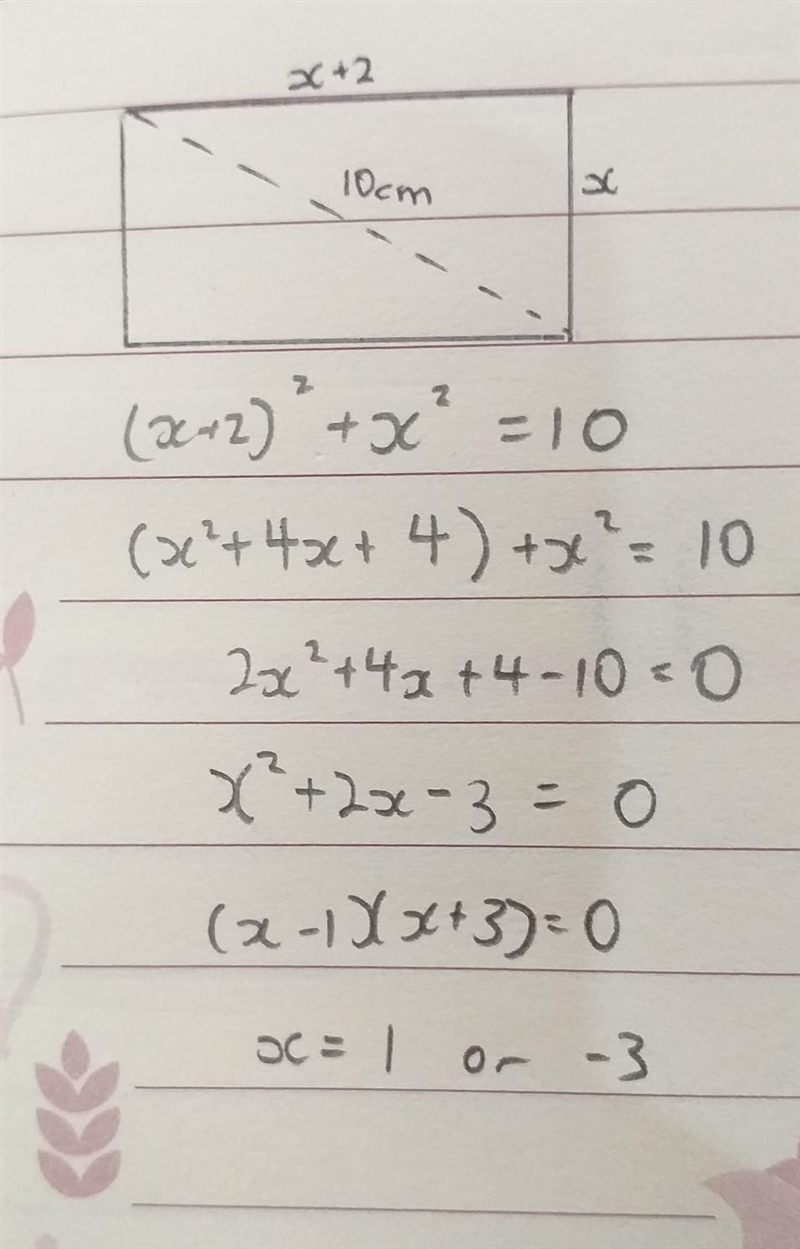 x+2
10cm
x
(x+2)² + x² = 10
(x² + 4x + 4) + x² = 10
2x² + 4x + 4 - 10 = 0
x² + 2x - 3 = 0
(x - 1)(x + 3) = 0
x = 1 or -3